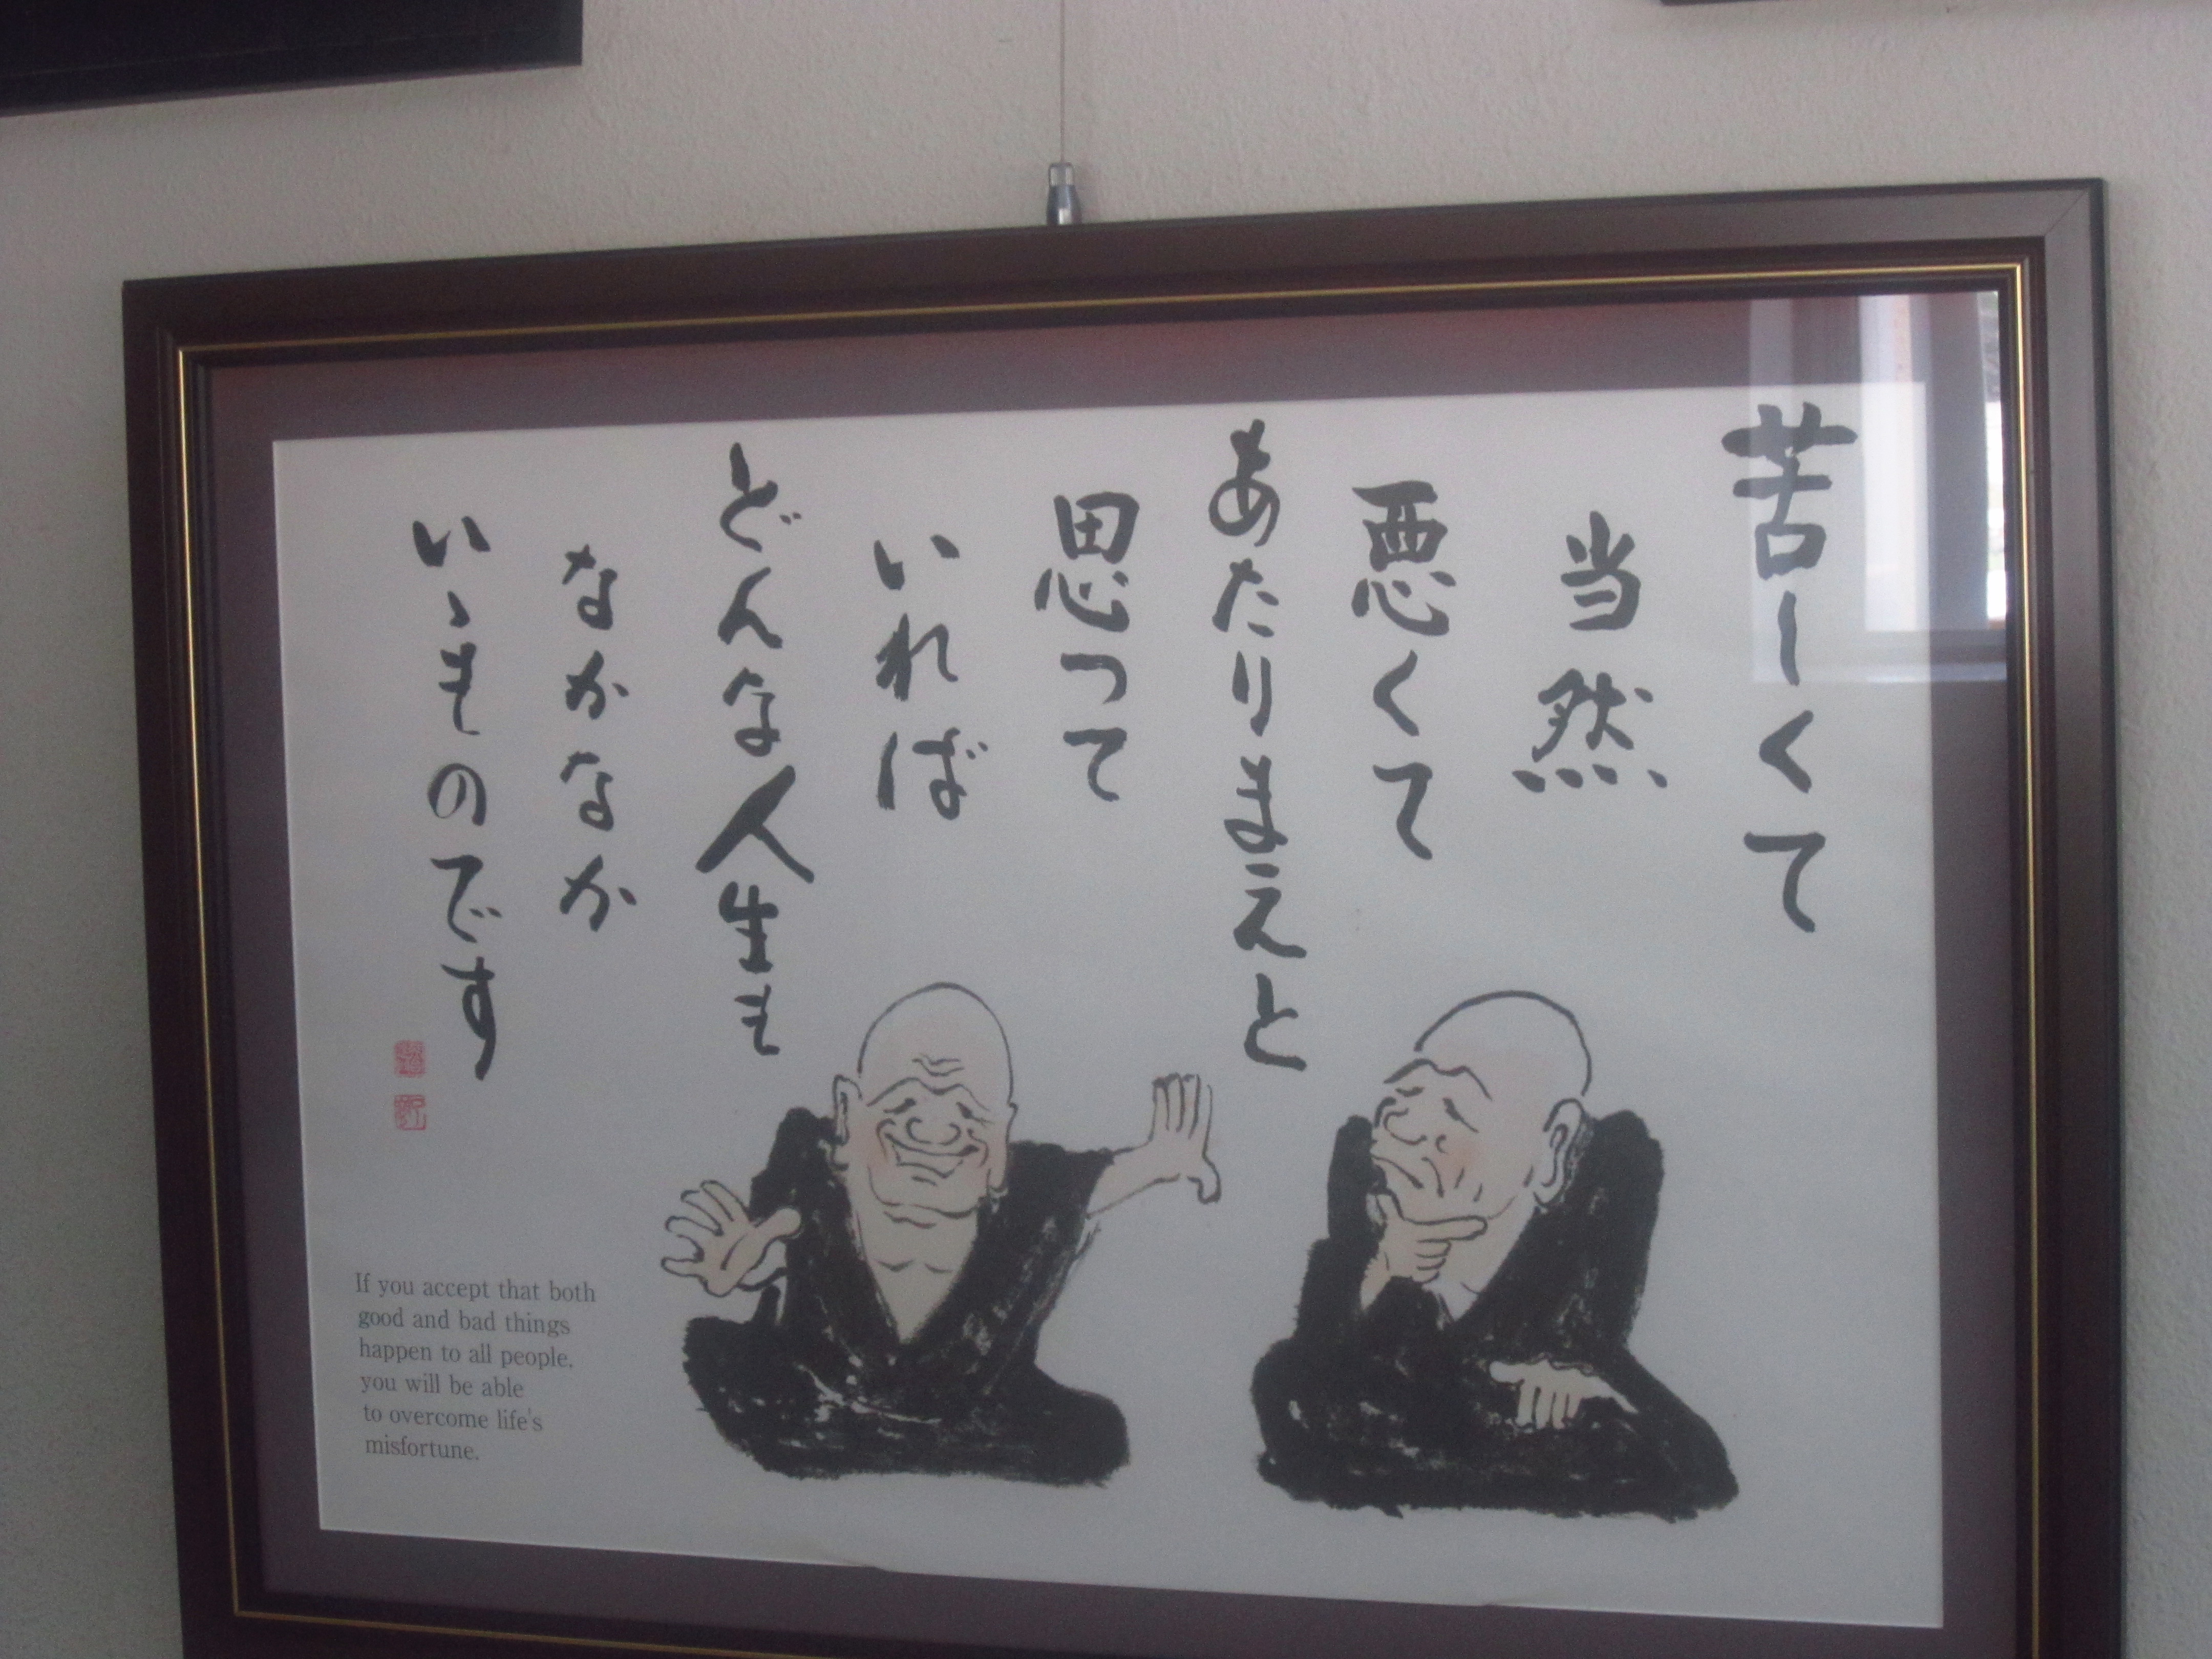 苦しくて
当然
悪くて
あたりまえと
思って
いれば
どんな人生も
なかなか
いゝものです
If you accept that both
good and bad things
happen to all people,
you will be able
to overcome life's
misfortune.